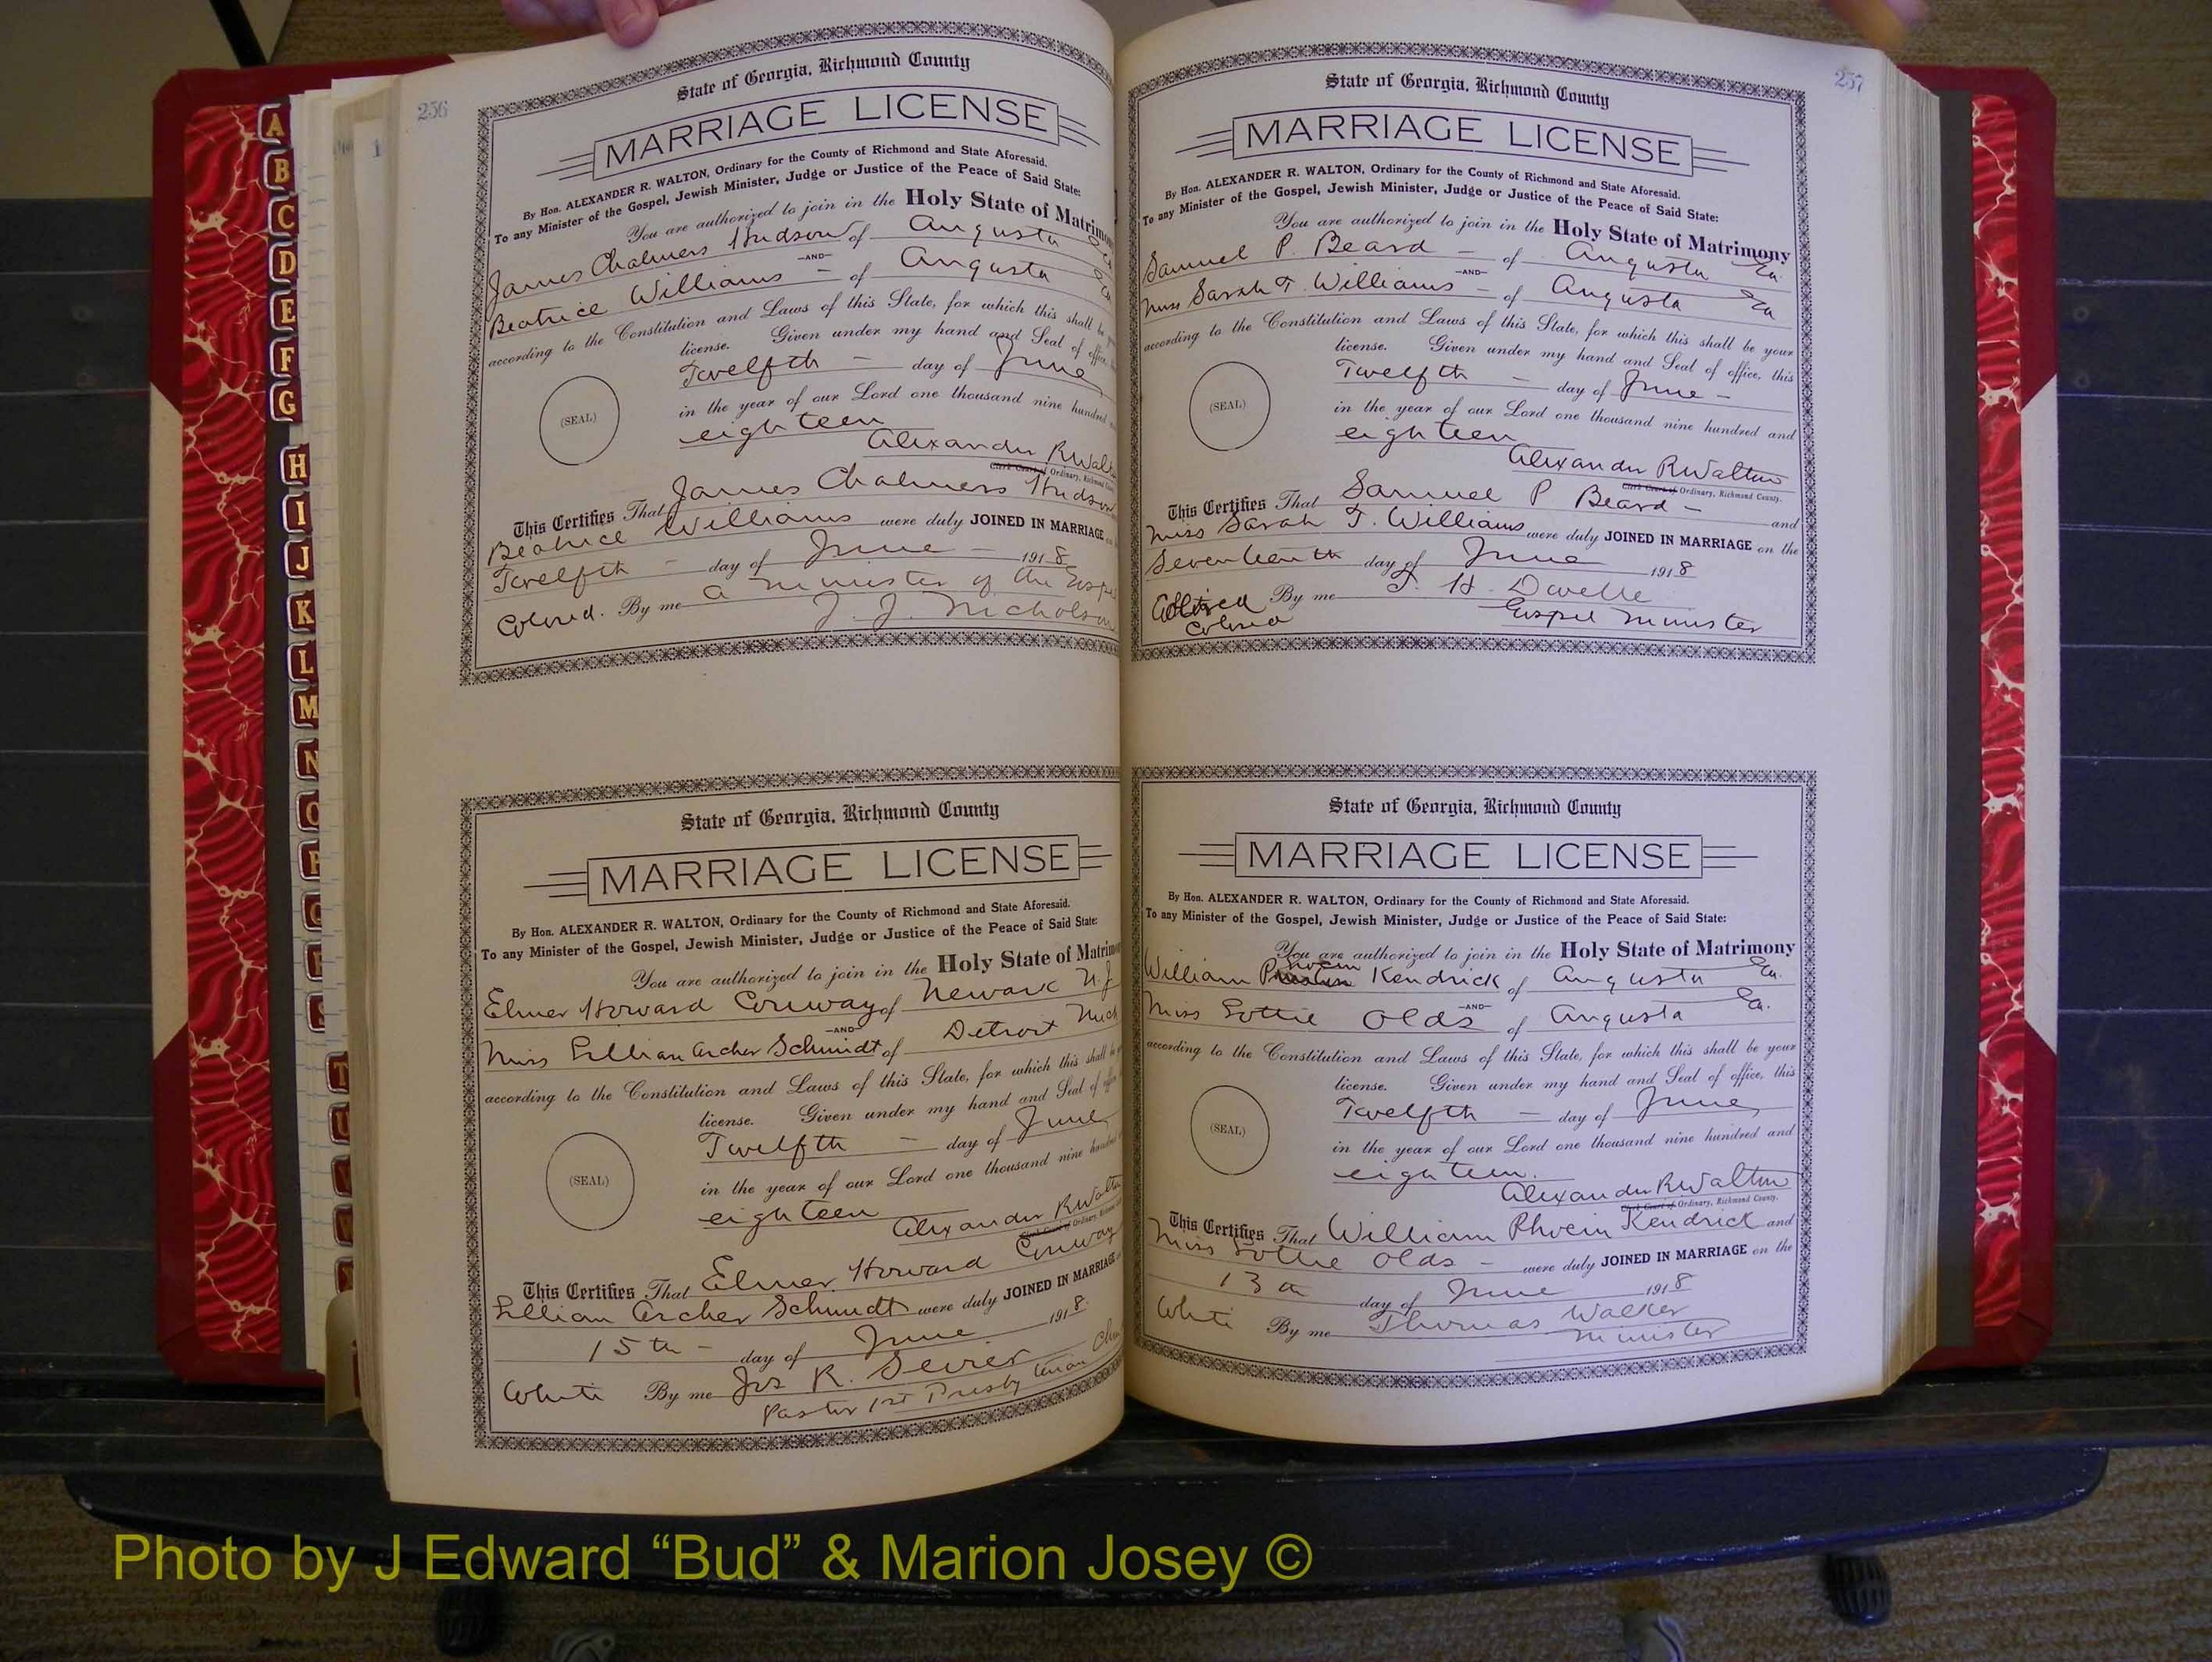 A
B
C
D
E
F
G
H
I
J
K
L
M
N
O
P
T
U
V
W
256
State of Georgia, Richmond County
MARRIAGE LICENSE
By Hon. ALEXANDER R. WALTON, Ordinary for the County of Richmond and State Aforesaid.
To any Minister of the Gospel, Jewish Minister, Judge or Justice of the Peace of Said State:
You are authorized to join in the Holy State of Matrimo
James Chalmers Hudson of Augusta
—AND—
Beatrice Williams - of Augusta
according to the Constitution and Laws of this State, for which this shall be
license. Given under my hand and Seal of office,
Twelfth - day of June
(SEAL)
in the year of our Lord one thousand nine hundred
eighteen
Alexander R Walt
Clerk Court of Ordinary, Richmond
This Certifies That James Chalmers Hudson
Beatrice Williams were duly JOINED IN MARRIAGE
Twelfth - day of June - 1918
Colored. By me a minister of the Gosp
J. J. Nicholson
State of Georgia, Richmond County
MARRIAGE LICENSE
By Hon. ALEXANDER R. WALTON, Ordinary for the County of Richmond and State Aforesaid.
To any Minister of the Gospel, Jewish Minister, Judge or Justice of the Peace of Said State:
You are authorized to join in the Holy State of Matrim
Elmer Howard Conway of Newark N.J
—AND—
Miss Lillian Archer Schmidt of Detroit Mich
according to the Constitution and Laws of this State, for which this shall
license. Given under my hand and Seal of
Twelfth - day of June
(SEAL)
in the year of our Lord one thousand nine
eighteen
Alexander R Walto
Clerk Court of Ordinary,
This Certifies That Elmer Howard Conway
Lillian Archer Schmidt were duly JOINED IN MARRIAGE
15th - day of June 1918.
White By me Jos R. Sevier
Pastor 1st Presbyterian
257
State of Georgia, Richmond County
MARRIAGE LICENSE
By Hon. ALEXANDER R. WALTON, Ordinary for the County of Richmond and State Aforesaid.
To any Minister of the Gospel, Jewish Minister, Judge or Justice of the Peace of Said State:
You are authorized to join in the Holy State of Matrimony
Samuel P. Beard - of Augusta Ga.
—AND—
Miss Sarah T. Williams - of Augusta Ga
according to the Constitution and Laws of this State, for which this shall be your
license. Given under my hand and Seal of office, this
Twelfth - day of June -
(SEAL)
in the year of our Lord one thousand nine hundred and
eighteen
Alexander R Walton
Clerk Court of Ordinary, Richmond County.
This Certifies That Samuel P Beard - and
Miss Sarah T. Williams were duly JOINED IN MARRIAGE on the
Seventeenth day of June 1918
By me T. H. Dwelle
Colored Gospel Minister
State of Georgia, Richmond County
MARRIAGE LICENSE
By Hon. ALEXANDER R. WALTON, Ordinary for the County of Richmond and State Aforesaid.
To any Minister of the Gospel, Jewish Minister, Judge or Justice of the Peace of Said State:
You are authorized to join in the Holy State of Matrimony
William Kendrick of Augusta Ga.
—AND—
Miss Lottie Olds of Augusta Ga.
according to the Constitution and Laws of this State, for which this shall be your
license. Given under my hand and Seal of office, this
Twelfth - day of June
(SEAL)
in the year of our Lord one thousand nine hundred and
eighteen.
Alexander R Walton
Clerk Court of Ordinary, Richmond County.
This Certifies That William Phvein Kendrick and
Miss Lottie Olds - were duly JOINED IN MARRIAGE on the
13th day of June 1918
White By me Thomas Walker
Minister
Photo by J Edward “Bud” & Marion Josey ©